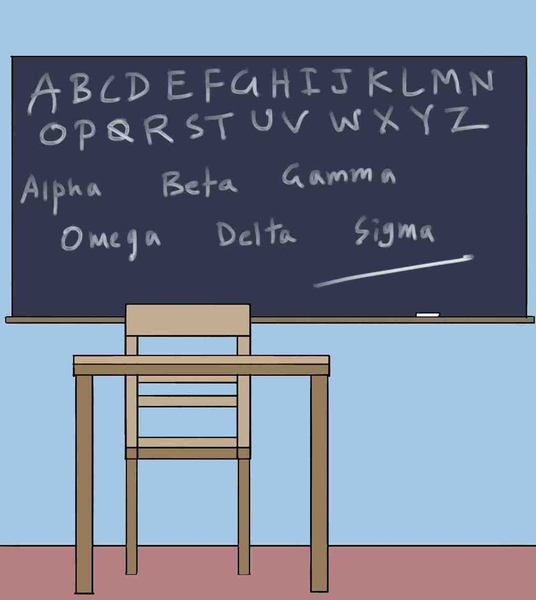 A B C D E F G H I J K L M N
O P Q R S T U V W X Y Z
Alpha Beta Gamma
Omega Delta Sigma